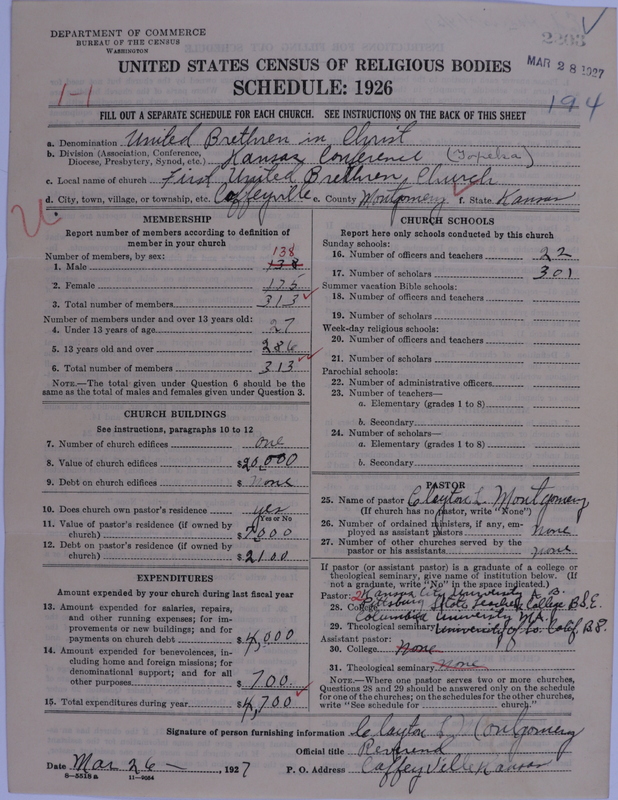 DEPARTMENT OF COMMERCE
BUREAU OF THE CENSUS
WASHINGTON
MAR 28 1927
UNITED STATES CENSUS OF RELIGIOUS BODIES
SCHEDULE: 1926
1-1
194
FILL OUT A SEPARATE SCHEDULE FOR EACH CHURCH. SEE INSTRUCTIONS ON THE BACK OF THIS SHEET
a. Denomination United Brethren in Christ
b. Division (Association, Conference, Diocese, Presbytery, Synod, etc.) Kansas Conference (Topeka)
c. Local name of church First United Brethren Church
d. City, town, village, or township, etc. Coffeyville e. County Montgomery f. State Kansas
MEMBERSHIP
Report number of members according to definition of
member in your church
Number of members, by sex:
138
1. Male 138
2. Female 175
3. Total number of members 313
Number of members under and over 13 years old:
4. Under 13 years of age 27
5. 13 years old and over 286
6. Total number of members 313
NOTE.—The total given under Question 6 should be the
same as the total of males and females given under Question 3.
CHURCH BUILDINGS
See instructions, paragraphs 10 to 12
7. Number of church edifices one
8. Value of church edifices $20,000
9. Debt on church edifices $ None
10. Does church own pastor's residence yes
(Yes or No)
11. Value of pastor's residence (if owned by
church) $7000
12. Debt on pastor's residence (if owned by
church) $2100
EXPENDITURES
Amount expended by your church during last fiscal year
13. Amount expended for salaries, repairs,
and other running expenses; for im-
provements or new buildings; and for
payments on church debt $4,000
14. Amount expended for benevolences, in-
cluding home and foreign missions; for
denominational support; and for all
other purposes $700
15. Total expenditures during year $4,700
CHURCH SCHOOLS
Report here only schools conducted by this church
Sunday schools:
16. Number of officers and teachers 22
17. Number of scholars 301
Summer vacation Bible schools:
18. Number of officers and teachers
19. Number of scholars
Week-day religious schools:
20. Number of officers and teachers
21. Number of scholars
Parochial schools:
22. Number of administrative officers
23. Number of teachers—
a. Elementary (grades 1 to 8)
b. Secondary
24. Number of scholars—
a. Elementary (grades 1 to 8)
b. Secondary
PASTOR
25. Name of pastor Clayton L Montgomery
(If church has no pastor, write "None")
26. Number of ordained ministers, if any, em-
ployed as assistant pastors none
27. Number of other churches served by the
pastor or his assistants none
If pastor (or assistant pastor) is a graduate of a college or
theological seminary, give name of institution below. (If
not a graduate, write "No" in the space indicated.)
Pastor: Kansas City University A.B.
28. College Pittsburg State Teachers College B.S.E.
Columbia University M.A.
29. Theological seminary University of So. Calif B.S.
Assistant pastor:
30. College None
31. Theological seminary None
NOTE.—Where one pastor serves two or more churches,
Questions 28 and 29 should be answered only on the schedule
for one of the churches; on the schedules for the other churches,
write "See schedule for church."
Signature of person furnishing information Clayton L Montgomery
Official title Reverend
Date Mar 26 , 1927 P. O. Address Coffeyville Kansas
8—5518a 11—9084